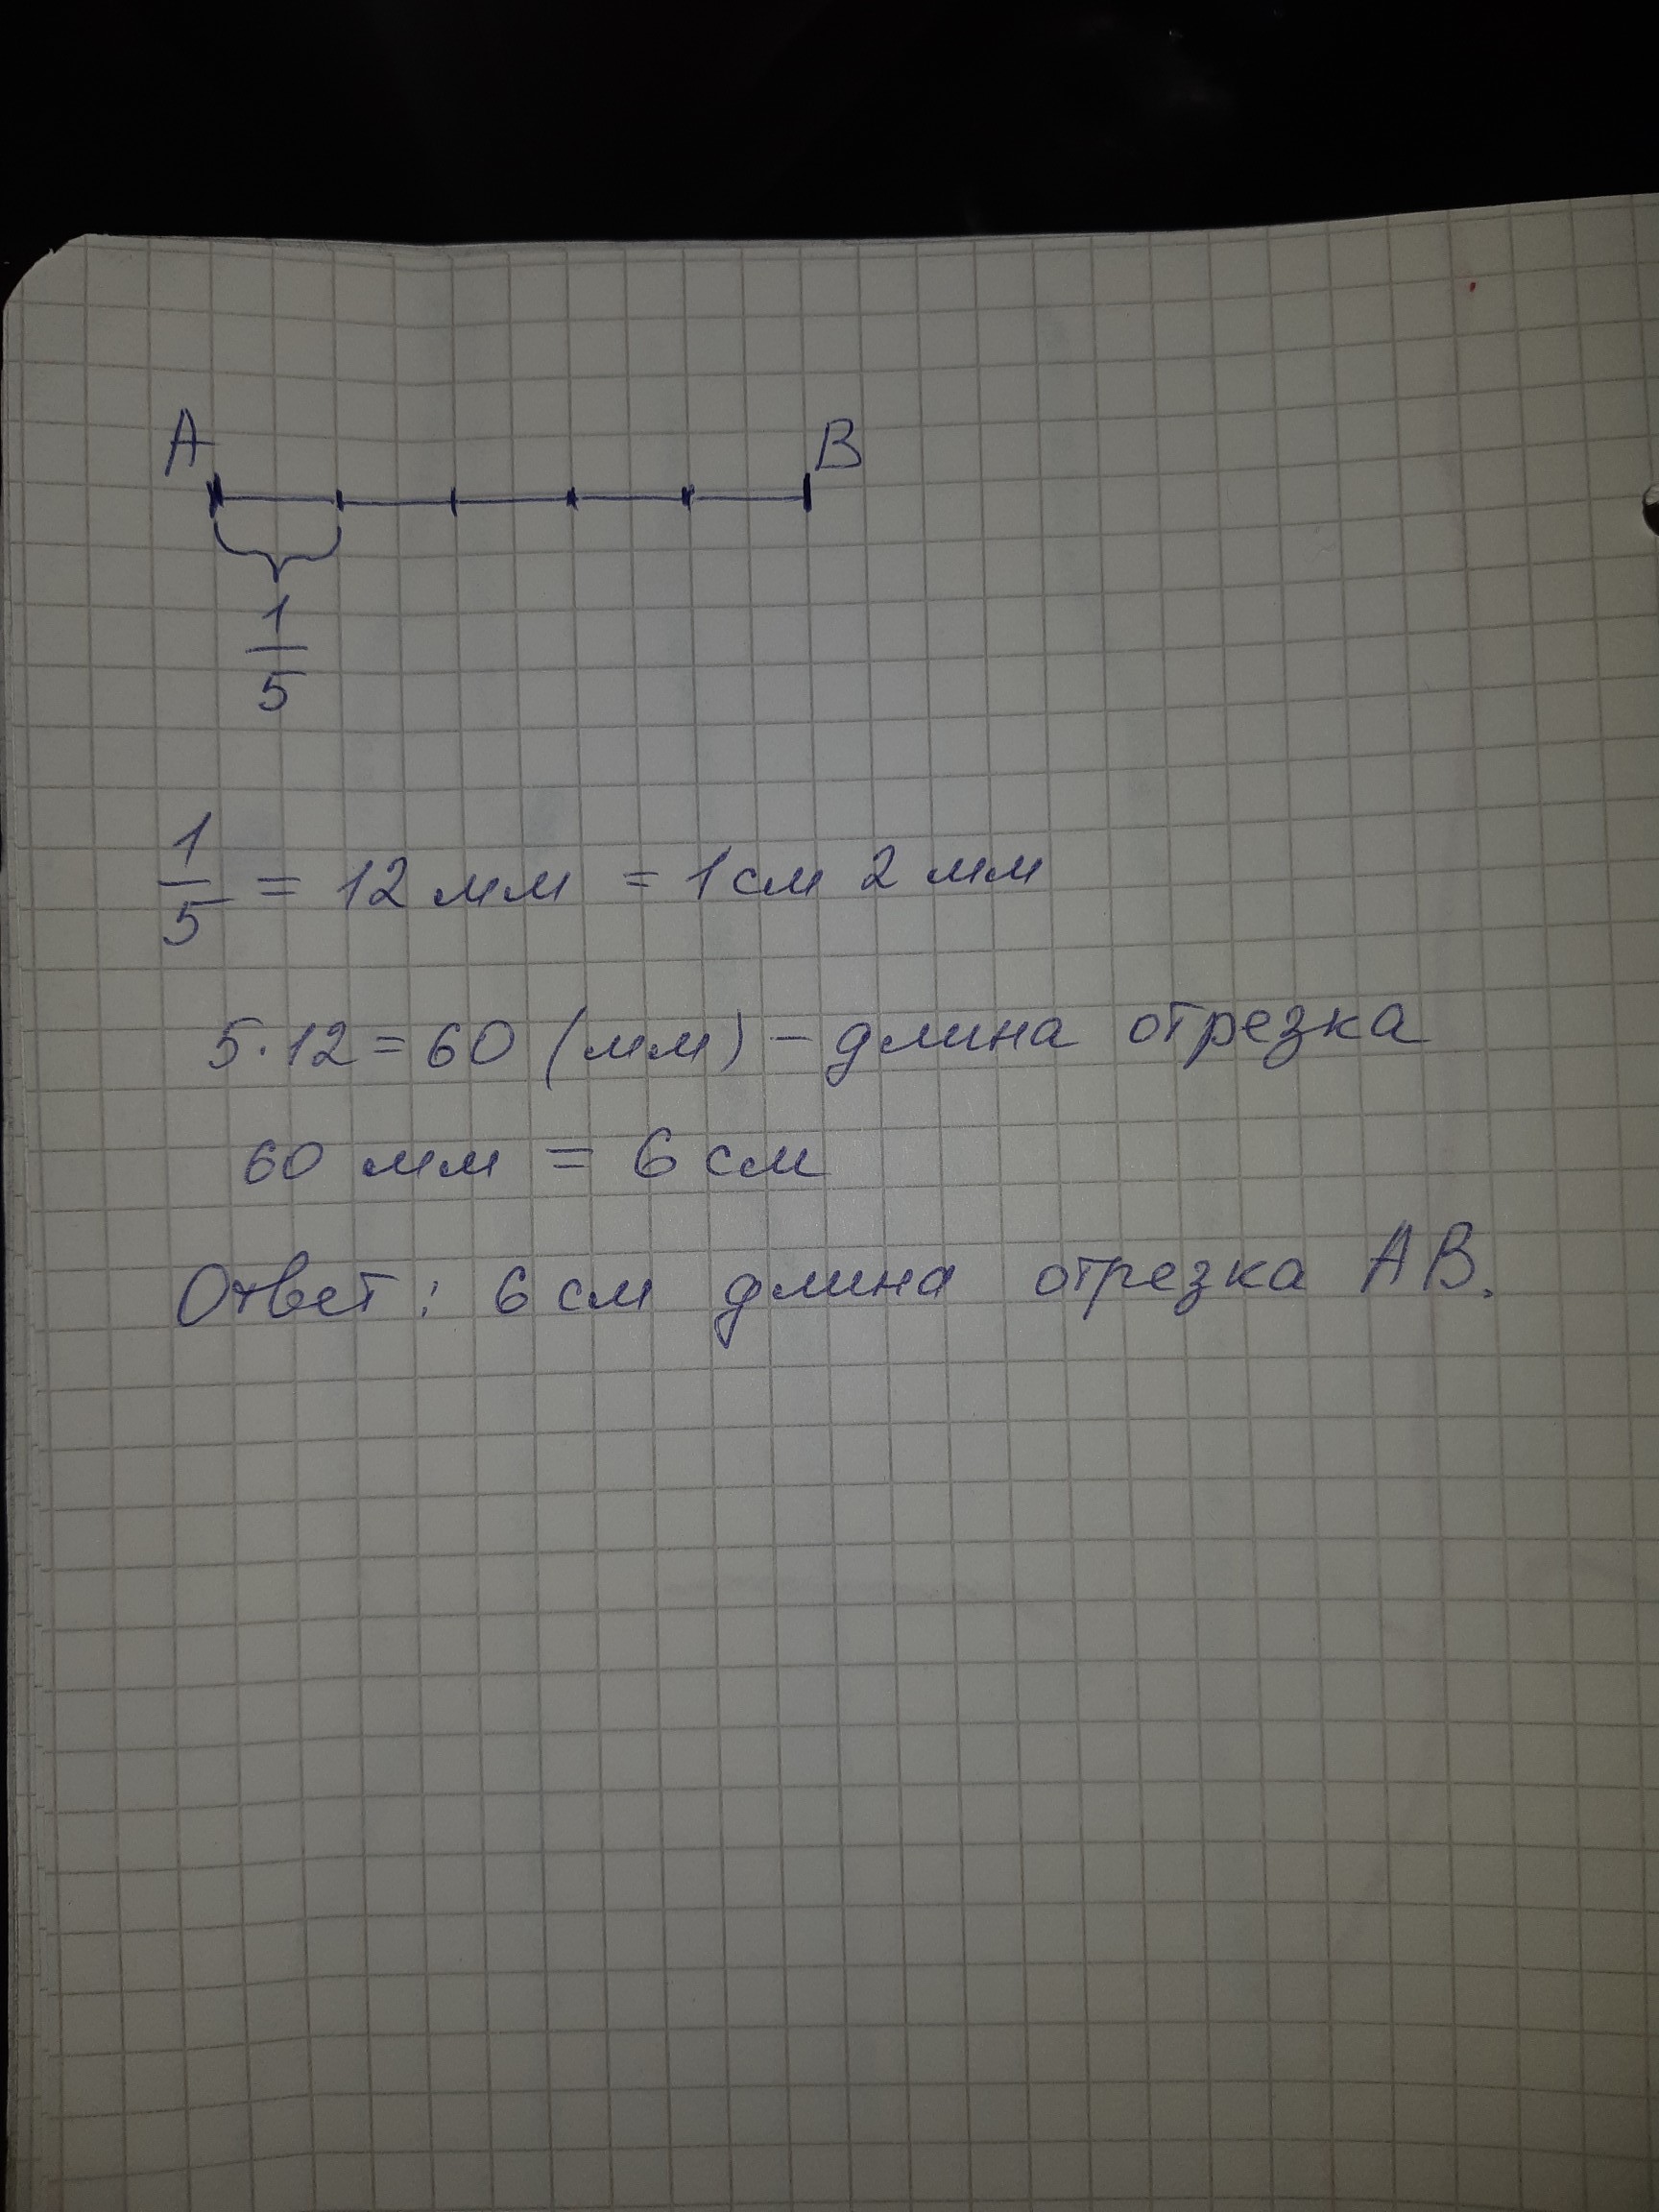 А В
1
5
1/5 = 12 мм = 1 см 2 мм
5·12=60 (мм) – длина отрезка
60 мм = 6 см
Ответ: 6 см длина отрезка АВ.